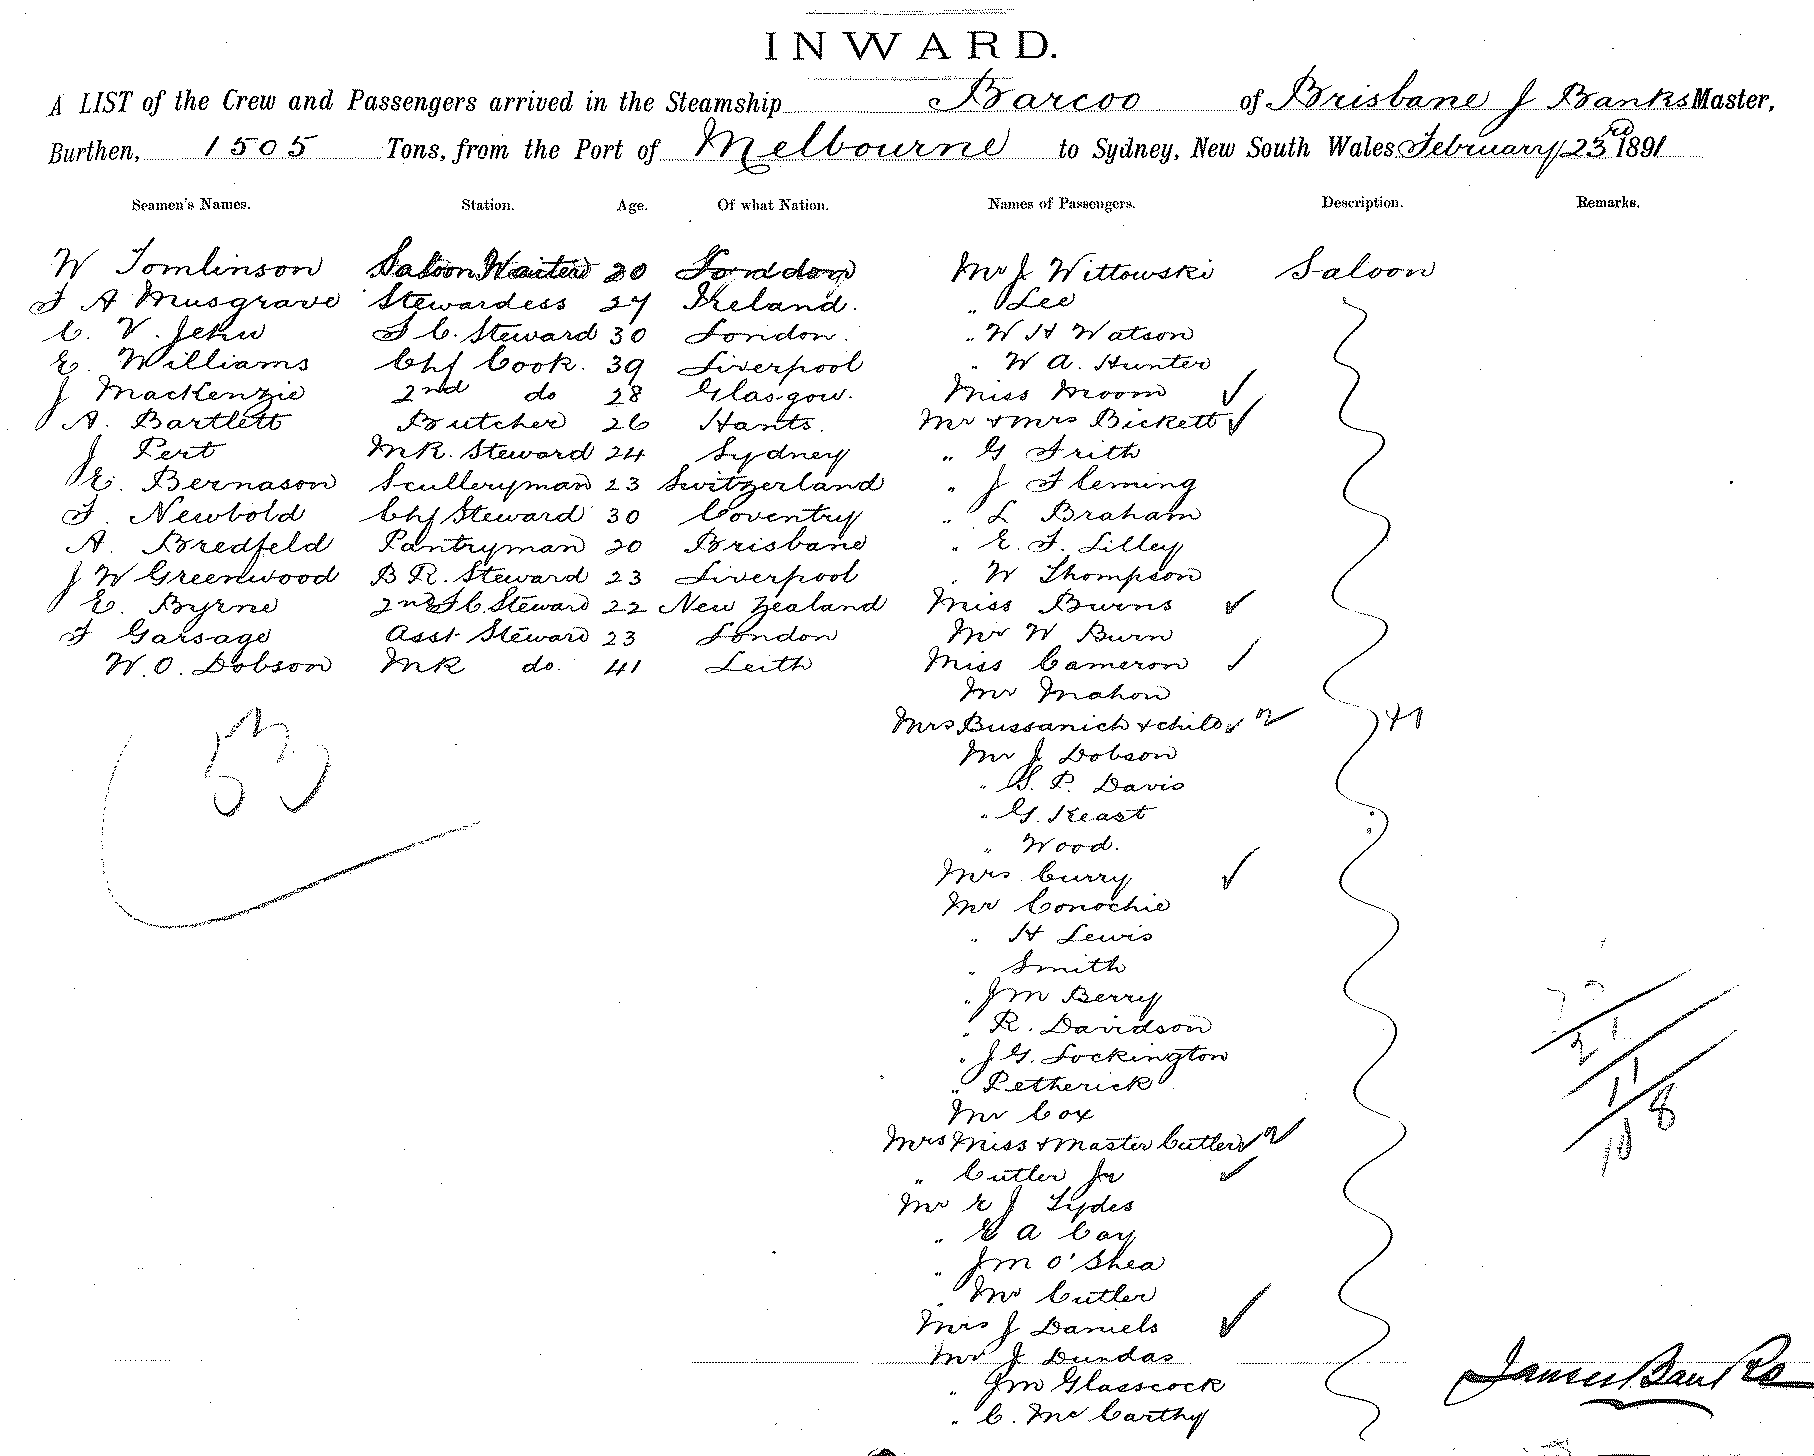 INWARD.
A LIST of the Crew and Passengers arrived in the Steamship Barcoo of Brisbane J Banks Master,
Burthen, 1505 Tons, from the Port of Melbourne to Sydney, New South Wales February 23rd 1891
Seamen's Names. Station. Age. Of what Nation. Names of Passengers. Description. Remarks.
W Tomlinson Saloon Waiter 20 London Mr J Wittowski Saloon
F A Musgrave Stewardess 27 Ireland. " Lee
C. V. Jehu F C. Steward 30 London. " W H Watson
E. Williams Chf Cook. 39 Liverpool " W A. Hunter
J MacKenzie 2nd do 28 Glasgow. Miss Moom
A. Bartlett Butcher 26 Hants. Mr & Mrs Bickett
J Pert MR. Steward 24 Sydney " G Frith
E. Bernason Sculleryman 23 Switzerland " J Fleming
F. Newbold Chf Steward 30 Coventry " L Braham
A. Bredfeld Pantryman 20 Brisbane " E. F. Lilley
J W Greenwood B R. Steward 23 Liverpool " W Thompson
E. Byrne 2nd F C. Steward 22 New Zealand Miss Burns
F Garsage Asst Steward 23 London Mr W Burn
W. O. Dobson MR do. 41 Leith Miss Cameron
Mr Mahon
Mrs Bussanich & child 2 41
Mr J Dobson
" G. P. Davis
" G. Keast
" Wood.
Mrs Curry
Mr Conochie
" H Lewis
" Smith
" J M Berry
" R. Davidson
" J G. Lockington
" Petherick
Mr Cox
Mrs Miss & Master Cutler 2
" Cutler Jr
Mr E J Sydes
" E A Cay
" J M O'Shea
" Mr Cutler
Mrs J Daniels
Mr J Dundas
" J M Glasscock
" C. McCarthy
53
21
11
10 8
James Banks